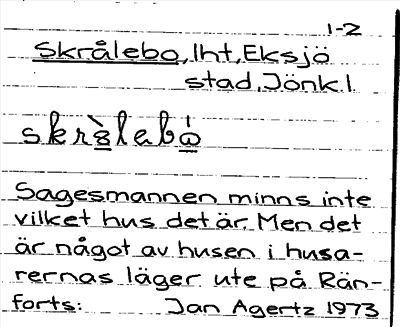 1-2
Skrålebo, lht, Eksjö
stad, Jönk. l.
Sagesmannen minns inte
vilket hus det är. Men det
är något av husen i husa-
rernas läger ute på Rän-
forts: Jan Agertz 1973